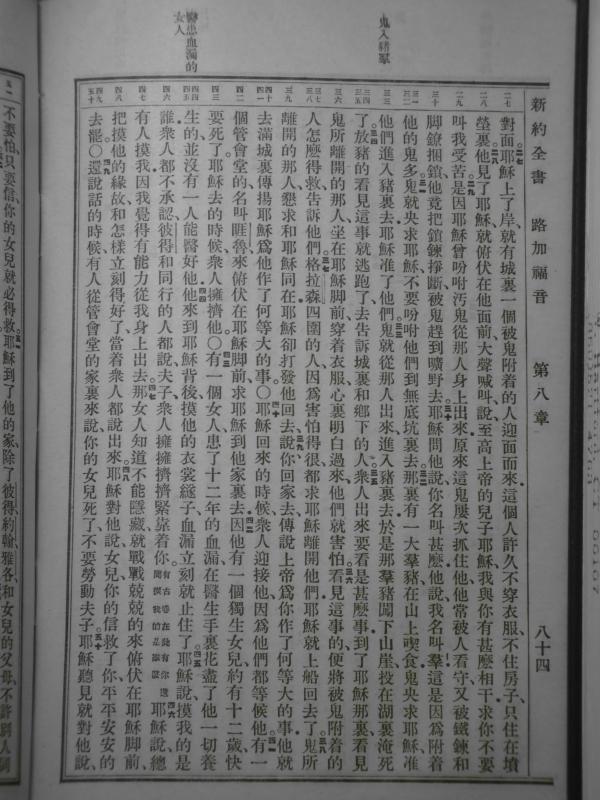 新約全書　路加福音　第八章　八十四
鬼入豬羣
醫患血漏的
女人
對面耶穌上了岸就有城裏一個被鬼附着的人迎面而來這個人許久不穿衣服不住在房子只住在墳
塋裏他見了耶穌就俯伏在他面前大聲喊叫說至高上帝的兒子耶穌我與你有甚麽相干求你不要
叫我受苦是因耶穌曾吩咐汚鬼從那人身上出來原來這鬼屢次抓住他他常被人看守又被鐵鍊和
脚鐐捆鎖他竟把鎖鍊掙斷被鬼趕到曠野去耶穌問他說你名叫甚麽他說我名叫羣這是因爲附着
他的鬼多鬼就央求耶穌不要吩咐他們到無底坑裏去那裏有一大羣豬在山上喫食鬼央求耶穌准
他們進入豬裏去耶穌准了他們鬼就從那人出來進入豬裏去於是那羣豬闖下山崖投在湖裏淹死
了放豬的看見這事就逃跑了去告訴城裏和鄉下的人衆人出來要看是甚麽事到了耶穌那裏看見
鬼所離開的那人坐在耶穌脚前穿着衣服心裏明白過來他們就害怕看見這事的便將被鬼附着的
人怎麽得救告訴他們格拉森四圍的人因爲害怕得很都求耶穌離開他們耶穌就上船回去了鬼所
離開的那人懇求和耶穌同在耶穌卻打發他回去說你回家去傳說上帝爲你作了何等大的事他就
去滿城裏傳揚耶穌爲他作了何等大的事〇耶穌回來的時候衆人迎接他因爲他們都等候他有一
個管會堂的名叫睚魯來俯伏在耶穌脚前求耶穌到他家裏去因他有一個獨生女兒約有十二歲快
要死了耶穌去的時候衆人擁擠他〇有一個女人患了十二年的血漏在醫生手裏花盡了他一切養
生的並沒有一人能醫好他他來到耶穌背後摸他的衣裳繸子血漏立刻就止住了耶穌說摸我的是
誰衆人都不承認彼得和同行的人都說夫子衆人擁擁擠擠緊靠着你耶穌說總
有人摸我因我覺得有能力從我身上出去那女人知道不能隱藏就戰戰兢兢的來俯伏在耶穌脚前
把摸他的緣故和怎樣立刻得好了當着衆人都說出來耶穌對他說女兒你的信救了你平平安安的
去罷〇還說話的時候有人從管會堂的家裏來說你的女兒死了不要勞動夫子耶穌聽見就對他說
不要怕只要信你的女兒就必得救耶穌到了他的家除了彼得約翰雅各和女兒的父母不許別人同